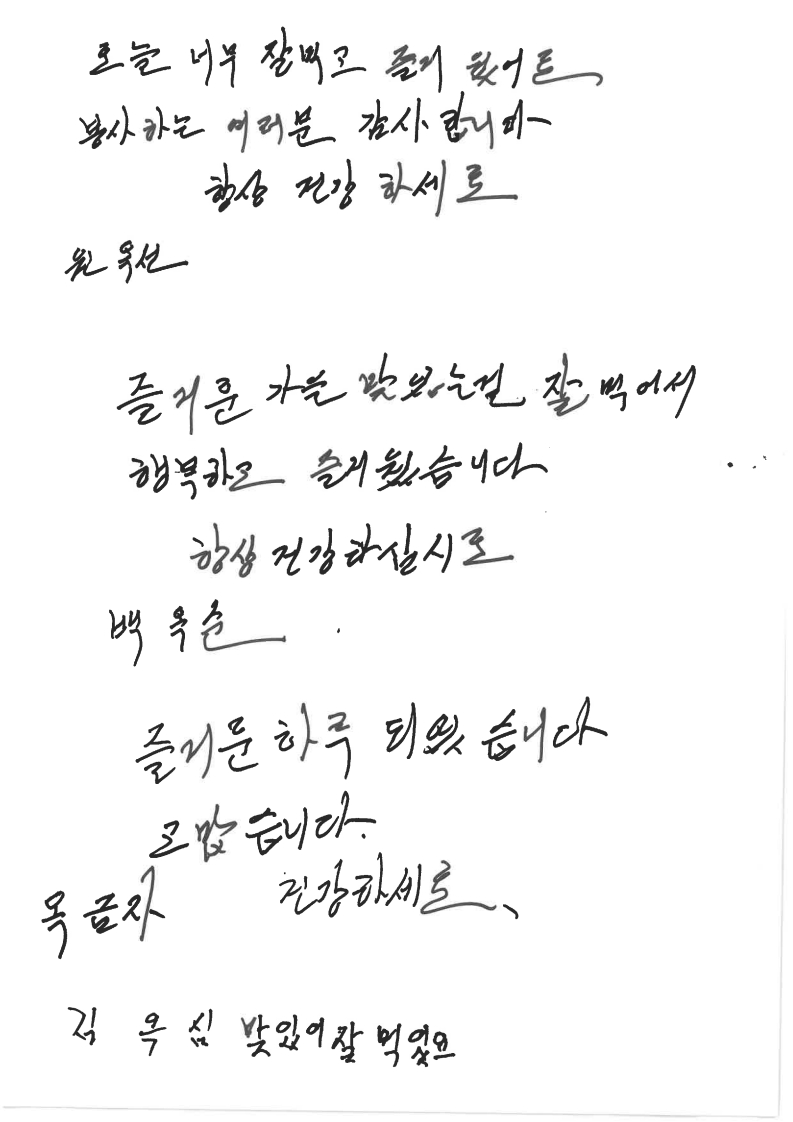 오늘 너무 잘먹고 즐거웠어요
봉사하는 여러분 감사합니다
항상 건강 하세요
옥선
즐거운 가을 맛있는걸 잘 먹어서
행복하고 즐거웠습니다
항상 건강하십시요
백 옥순
즐거운 하루 되었습니다
고맙습니다.
건강하세요
옥금자
김 옥 심 맛있이 잘 먹었요